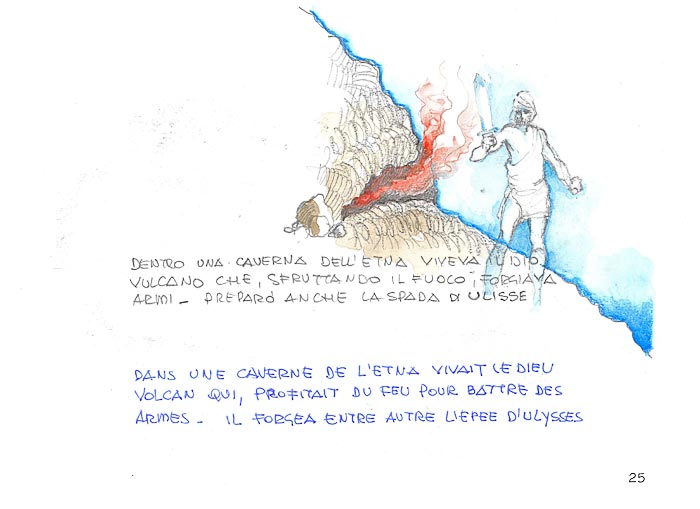 DENTRO UNA CAVERNA DELL'ETNA VIVEVA IL DIO
VULCANO CHE, SFRUTTANDO IL FUOCO, FORGIAVA
ARMI - PREPARÒ ANCHE LA SPADA DI ULISSE
DANS UNE CAVERNE DE L'ETNA VIVAIT LE DIEU
VOLCAN QUI, PROFITAIT DU FEU POUR BATTRE DES
ARMES - IL FORGEA ENTRE AUTRE L'EPEE D'ULYSSES
25